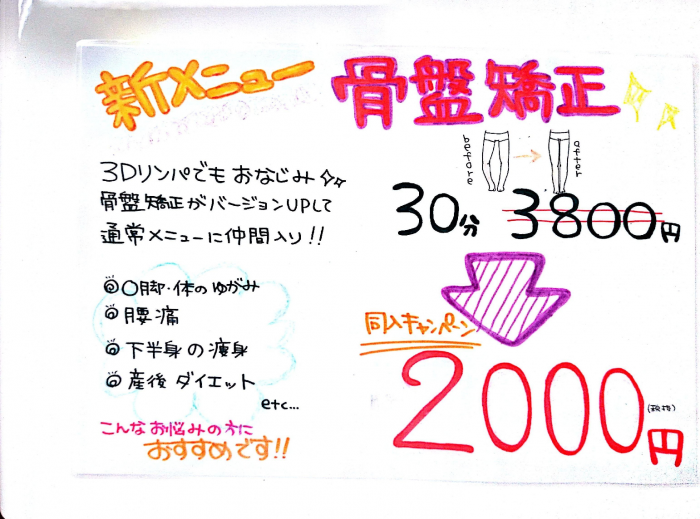 新メニュー 骨盤矯正
3Dリンパでもおなじみ☆☆
骨盤矯正がバージョンUPして
通常メニューに仲間入り!!
◎O脚・体のゆがみ
◎腰痛
◎下半身の痩身
◎産後ダイエット
etc...
こんなお悩みの方に
おすすめです!!
before → after
30分 3800円
同入キャンペーン
2000円
(税抜)